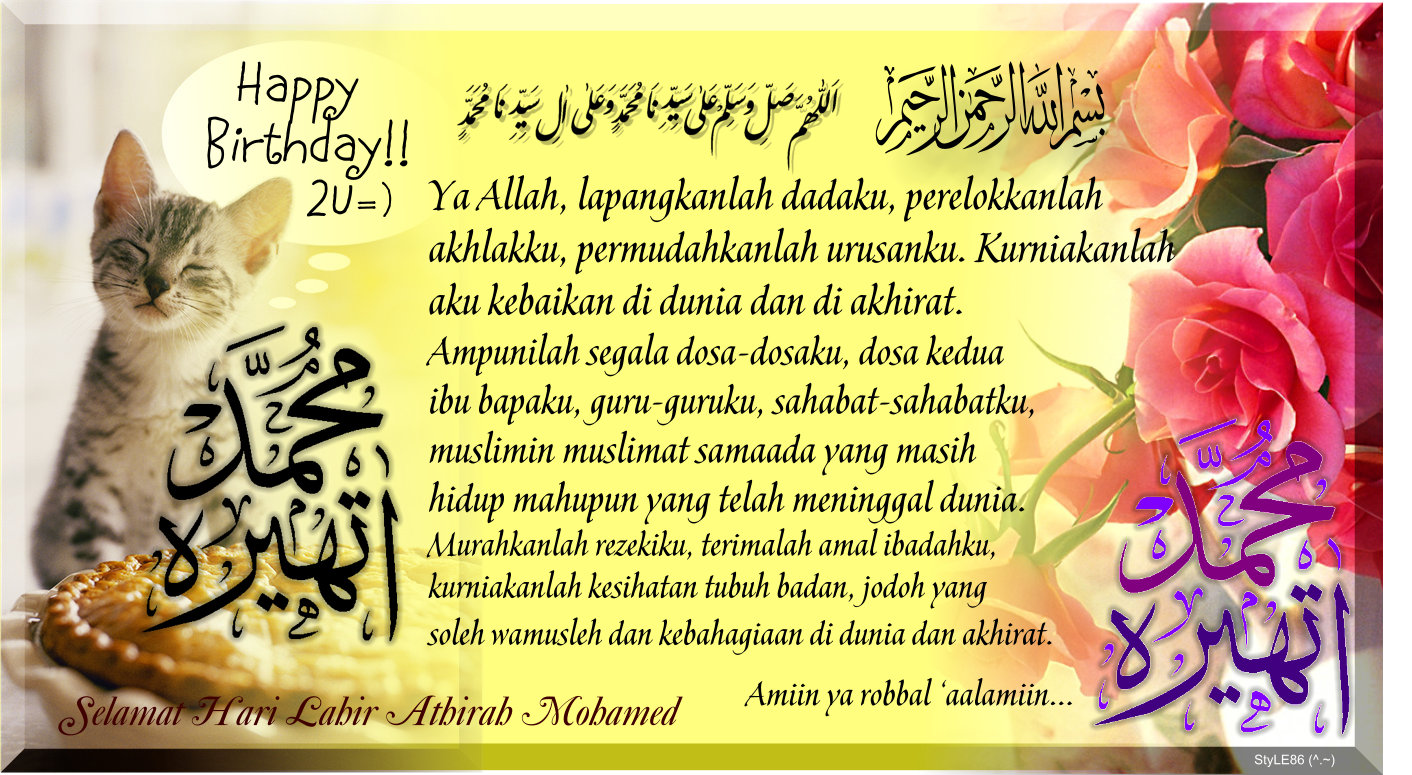 Happy
Birthday!!
2U=)
اَللّٰهُمَّ صَلِّ وَسَلِّمْ عَلٰى سَيِّدِنَا مُحَمَّدٍ وَعَلٰى اٰلِ سَيِّدِنَا مُحَمَّدٍ
بِسْمِ اللَّهِ الرَّحْمَنِ الرَّحِيمِ
Ya Allah, lapangkanlah dadaku, perelokkanlah
akhlakku, permudahkanlah urusanku. Kurniakanlah
aku kebaikan di dunia dan di akhirat.
Ampunilah segala dosa-dosaku, dosa kedua
ibu bapaku, guru-guruku, sahabat-sahabatku,
muslimin muslimat samaada yang masih
hidup mahupun yang telah meninggal dunia.
Murahkanlah rezekiku, terimalah amal ibadahku,
kurniakanlah kesihatan tubuh badan, jodoh yang
soleh wamusleh dan kebahagiaan di dunia dan akhirat.
Amiin ya robbal ‘aalamiin...
محمد
اتهيره
محمد
اتهيره
Selamat Hari Lahir Athirah Mohamed
StyLE86 (^.~)